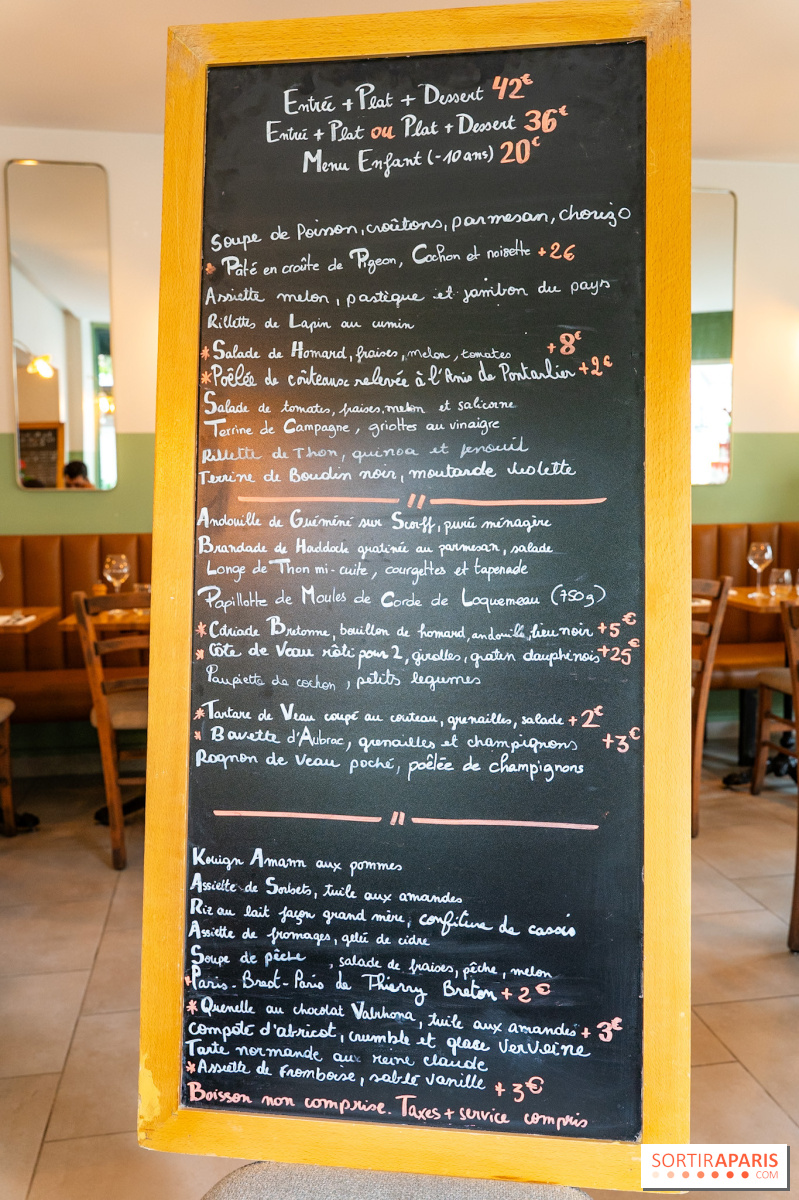 Entrée + Plat + Dessert 42€
Entrée + Plat ou Plat + Dessert 36€
Menu Enfant (-10 ans) 20€
Soupe de Poisson, croûtons, parmesan, chorizo
* Pâté en croûte de Pigeon, Cochon et noisette +2€
Assiette melon, pastèque et jambon du pays
Rillettes de Lapin au cumin
* Salade de Homard, fraises, melon, tomates +8€
* Poêlée de couteaux relevée à l'Anis de Pontarlier +2€
Salade de tomates, fraises, melon et salicorne
Terrine de Campagne, griottes au vinaigre
Rillette de Thon, quinoa et fenouil
Terrine de Boudin noir, moutarde violette
//
Andouille de Guéméné sur Scorff, purée ménagère
Brandade de Haddock gratinée au parmesan, salade
Longe de Thon mi-cuite, courgettes et tapenade
Papillotte de Moules de Corde de Loquemeau (750g)
* Cotriade Bretonne, bouillon de homard, andouille, lieu noir +5€
* Côte de Veau rôti pour 2, girolles, gratin dauphinois +25€
Paupiette de cochon, petits legumes
* Tartare de Veau coupé au couteau, grenailles, salade +2€
* Bavette d'Aubrac, grenailles et champignons +3€
Rognon de Veau poché, poêlée de champignons
//
Kouign Amann aux pommes
Assiette de Sorbets, tuile aux amandes
Riz au lait façon grand mère, confiture de cassis
Assiette de fromages, gelée de cidre
Soupe de pêche , salade de fraises, pêche, melon
* Paris-Brest-Paris de Thierry Breton +2€
* Quenelle au chocolat Valrhona, tuile aux amandes +3€
compote d'abricot, crumble et glace verveine
Tarte normande aux reine claude
* Assiette de Framboise, sablé vanille +3€
Boisson non comprise. Taxes + service compris
SORTIRAPARIS
.COM